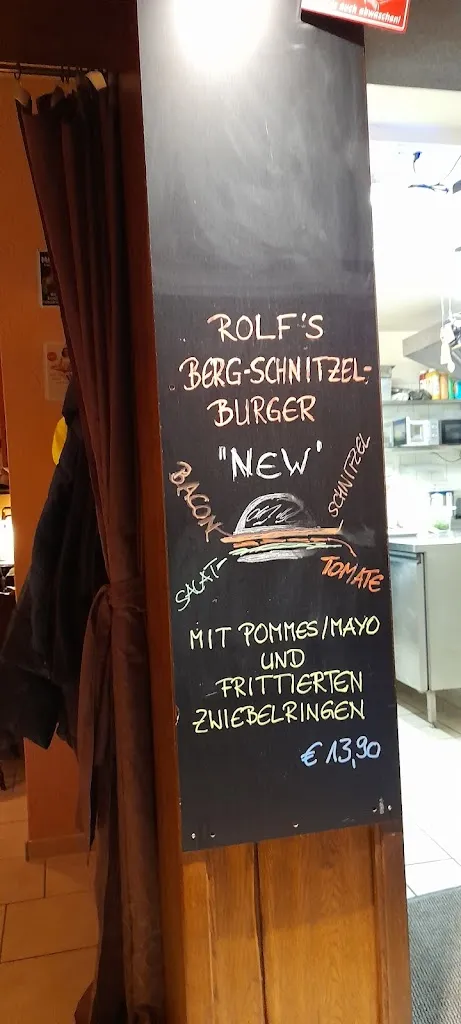 auch abwaschen!
ROLF'S
BERG-SCHNITZEL-
BURGER
"NEW"
BACON
SCHNITZEL
SALAT
TOMATE
MIT POMMES/MAYO
UND
FRITTIERTEN
ZWIEBELRINGEN
€ 13,90